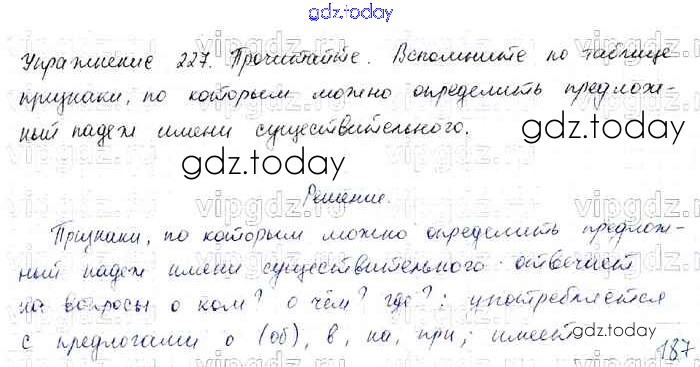 gdz.today
Упражнение 227. Прочитайте. Вспомните по таблице
признаки, по которым можно определить предлож-
ный падеж имени существительного.
gdz.today
gdz.today
Решение.
Признаки, по которым можно определить предлож-
ный падеж имени существительного: отвечает
на вопросы о ком? о чём? где?; употребляется
с предлогами о (об), в, на, при; имеет
gdz.today
187